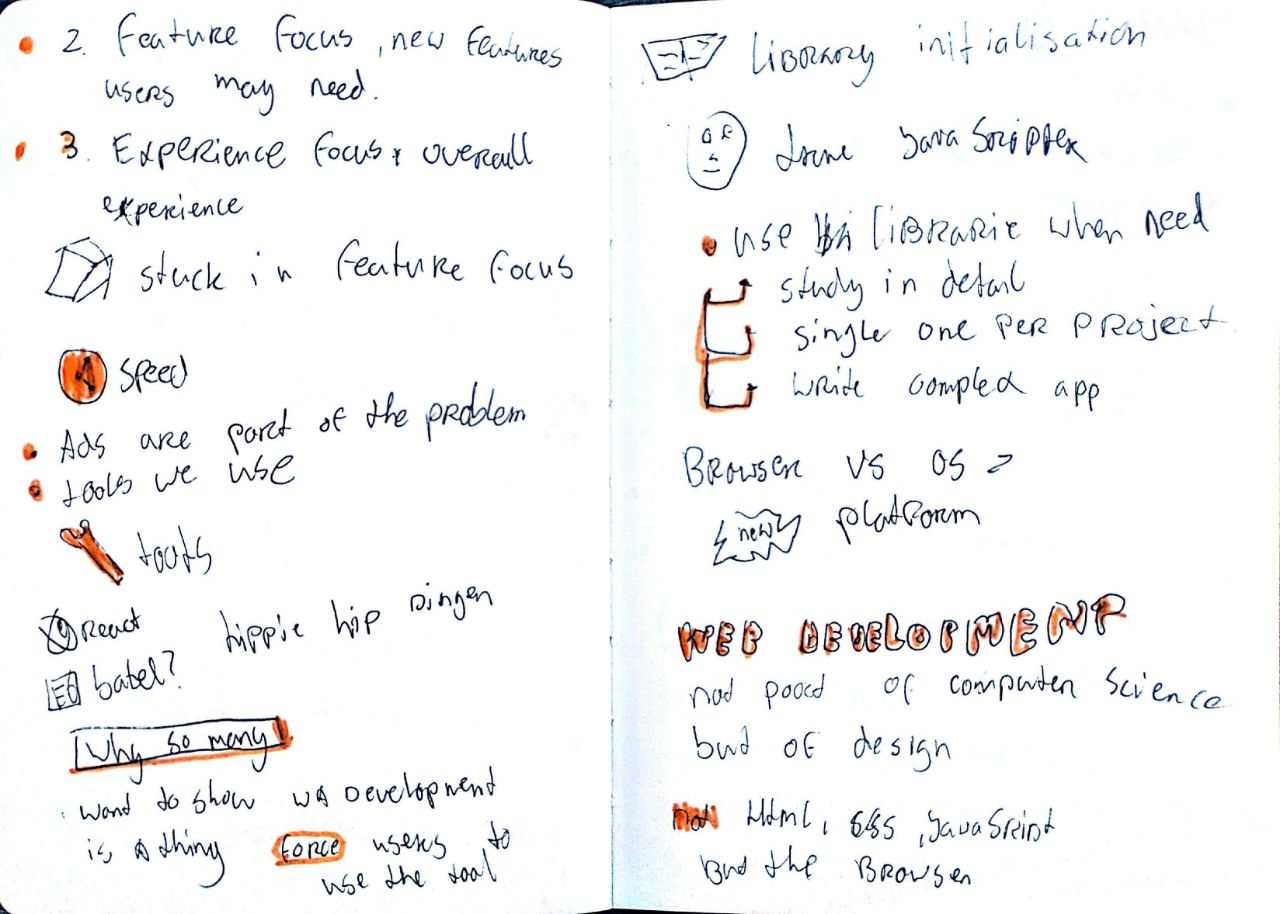 2. Feature Focus, new features
users may need.
3. Experience Focus overall
experience
stuck in feature Focus
Speed
Ads are part of the problem
tools we use
React hippie hip dingen
babel?
Why so many
want to show development
is a thing force users to
use the tool
Library initialisation
JavaScripter
use librarie when need
study in detail
single one per project
write app
Browser vs OS
new platform
WEB DEVELOPMENT
not of computer science
bud of design
not Html, JavaSript
Bud the Browser